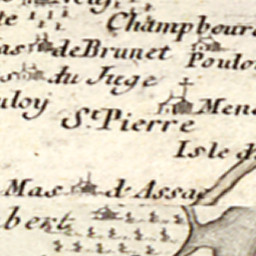 Champbour
as de Brunet Poulo
s du Juge
uloy Mene
St. Pierre
Isle d
Mas d'Assac
bert